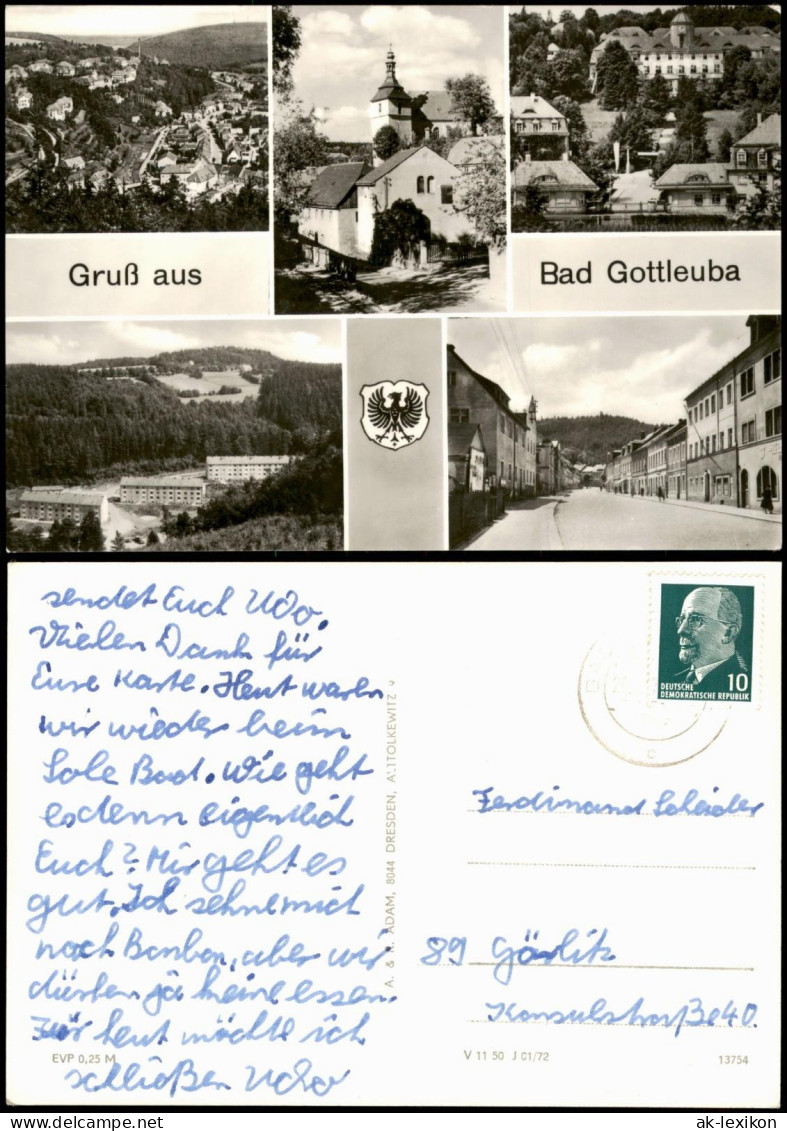 Gruß aus
Bad Gottleuba
sendet Euch Udo.
Vielen Dank für
Eure Karte. Heut waren
wir wieder beim
Sole Bad. Wie geht
es denn eigentlich
Euch? Mir geht es
gut. Ich sehne mich
nach Bonbon, aber wir
dürfen ja keine essen.
Für heut möchte ich
schließen Udo
EVP 0,25 M
A. & R. ADAM, 8044 DRESDEN, ALTTOLKEWITZ
10
DEUTSCHE
DEMOKRATISCHE REPUBLIK
Ferdinand Scheider
89 Görlitz
Konsulstraße 40
V 11 50 J 01/72
13754
ak-lexikon